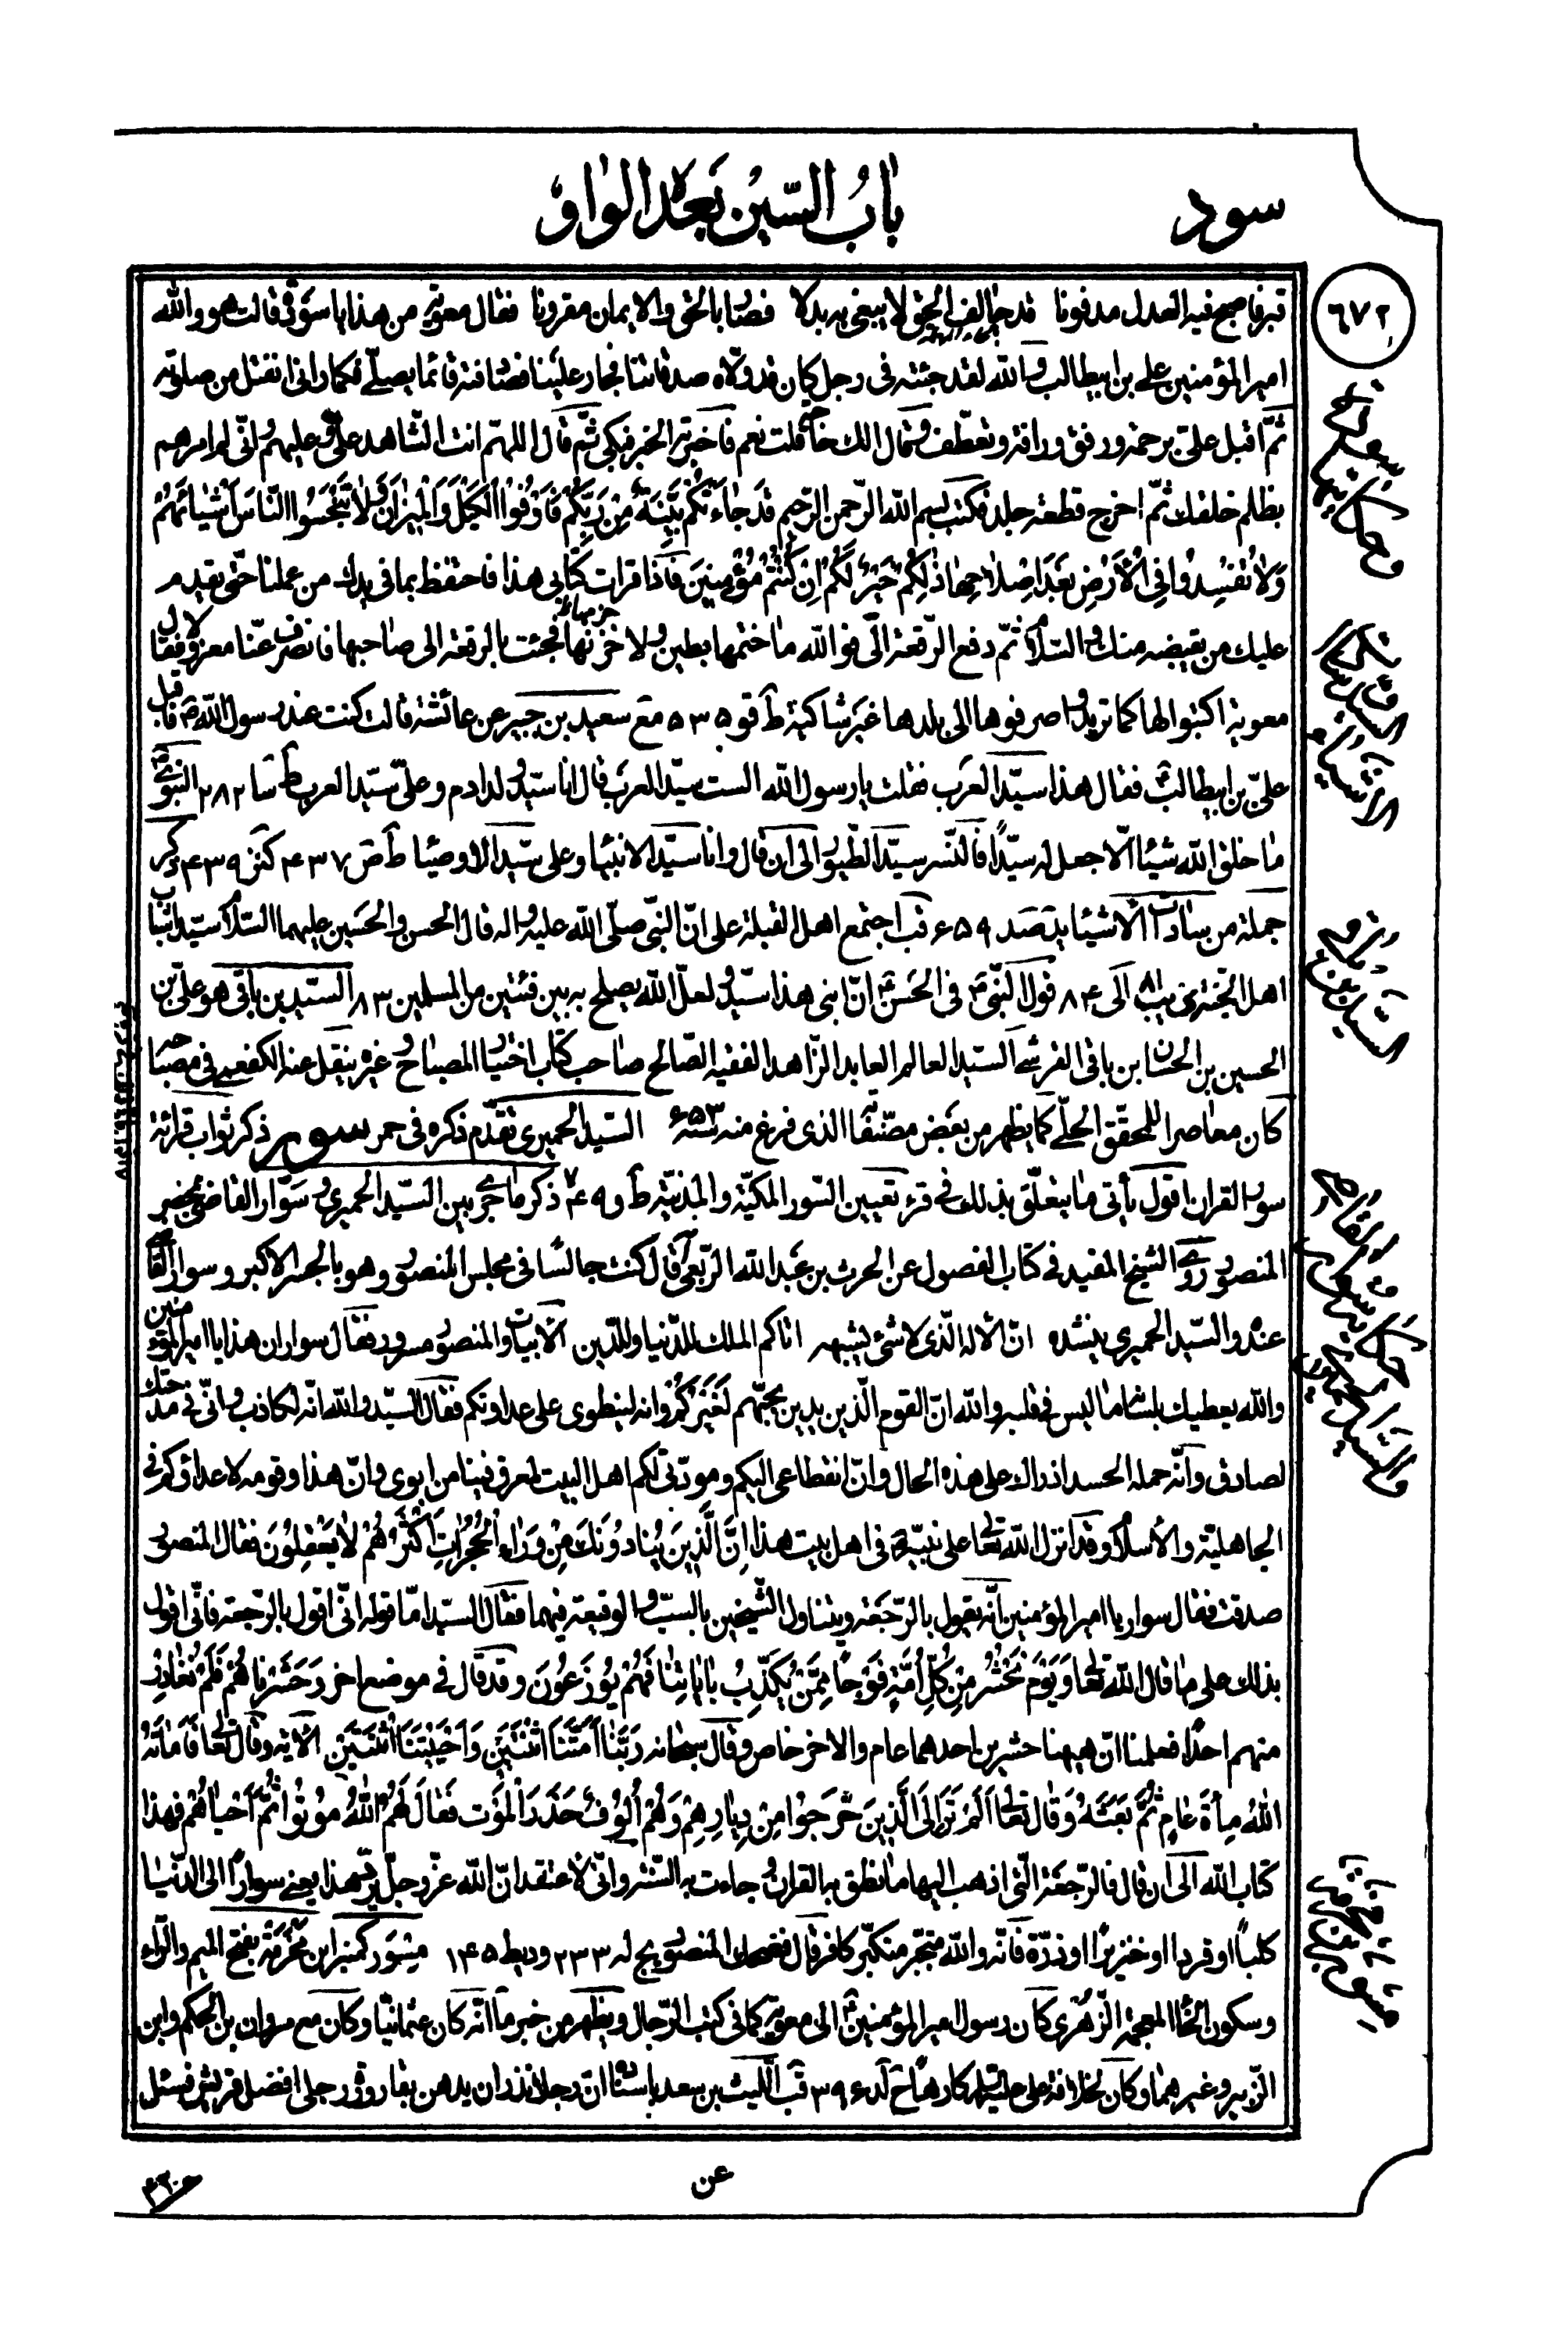 سود
باب السّين بعد الواو
٦٧٢
قبر فاصبح فيه العدل مدفونا قد حالف الحقّ لا يبغى به بدلا فصار بالحق والايمان مقرونا فقال معوية من هذا يا سودة قالت هو والله
امير المؤمنين علي بن ابيطالب والله لقد جئته فى رجل كان قد ولّاه صدقاتنا فجار علينا فصادفته قائما يصلّى فلما رانى انفتل من صلوته
ثمّ اقبل علىّ برحمة ورفق ورافة وتعطّف وقال الك حاجة قلت نعم فاخبرته الخبر فبكى ثمّ قال اللهمّ انت الشّاهد علىّ وعليهم وانّى لم امرهم
بظلم خلقك ثمّ اخرج قطعة جلد فكتب بسم الله الرّحمن الرّحيم قَد جاءَتكُم بَيِّنَةٌ مِن رَبِّكُم فَاَوفُوا الكَيلَ وَالميزانَ وَلا تَبخَسُوا النّاسَ اَشياءَهُم
وَلا تُفسِدُوا فِى الاَرضِ بَعدَ اِصلاحِها ذٰلِكُم خَيرٌ لَكُم اِن كُنتُم مُؤمِنينَ فاذا قرات كتابى هذا فاحتفظ بما فى يدك من عملنا حتّى يقدم
عليك من يقبضه منك والسّلام ثمّ دفع الرّقعة الىّ فوالله ما ختمها بطين ولا خزنها فجئت بالرقعة الى صاحبها فانصرف عنّا معزولا فقال
معوية اكتبوا لها كما تريد واصرفوها الى بلدها غير شاكية ط قو ٥٣٥ مع سعيد بن جبير عن عائشة قالت كنت عند رسول الله ص فاقبل
علىّ بن ابيطالب فقال هذا سيّد العرب فقلت يا رسول الله الست سيّد العرب قال انا سيّد ولد ادم وعلىّ سيّد العرب ط شا ٢٨٢ النبوى
ما خلق الله شيئا الّا جعل له سيّدًا فالنّسر سيّد الطّيور الى ان قال وانا سيّد الانبياء وعلى سيّد الاوصياء ط ص ٤٣٧ كنز ٤٣٩ ذكر
جملة من سادات الاشياء يد صد ٦٥٩ قب اجتمع اهل القبلة على انّ النّبى صلّى الله عليه واله قال الحسن والحسين عليهما السّلام سيّدا شباب
اهل الجنّة ى يب ٨١ الى ٨٤ قول النّبى فى الحسن انّ ابنى هذا سيّد ولعلّ الله يصلح به بين فئتين من المسلمين ٨٣ السّيّد بن باقى هو على بن
الحسين بن الحسان ابن باقى القرشى السيّد العالم العابد الزّاهد الفقيه الصّالح صاحب كتاب اختيار المصباح وغيره ينقل عنه الكفعمى فى مصباحه
كان معاصرا للمحقّق الحلّى كما يظهر من بعض مصنّفاته الذى فرغ منه سنة ٦٥٣ السّيّد الحميرى تقدّم ذكره فى حمر سور ذكر ثواب قرائة
سور القران اقول يأتى ما يتعلّق بذلك فى قرء تعيين السّور المكيّة والمدنيّة ط و ٧٤٩ ذكر ما جرى بين السّيّد الحميرى وسوّار القاضى بمحضر
المنصور روى الشيخ المفيد فى كتاب الفصول عن الحرث بن عبد الله الرّبعى قال كنت جالسًا فى مجلس المنصور وهو بالجسر الاكبر وسوار القاضى
عنده والسّيّد الحميرى ينشده انّ الاله الّذى لا شئ يشبهه اتاكم الملك للدّنيا وللدّين الابيات والمنصور مسرور فقال سوار ان هذا يا امير المؤمنين
والله يعطيك بلسانه ما ليس فى قلبه والله انّ القوم الّذين يدين بحبّهم لَغَيرُكُم وانه لينطوى على عداوتكم فقال السّيّد والله انّه لكاذب وانّى فى مدحتك
لصادق وانّه حمله الحسد اذ راك على هذه الحال وانّ انقطاعى اليكم ومودّتى لكم اهل البيت لمعرق فينا من ابوى وانّ هذا وقومه لاعداؤكم فى
الجاهليّة والاسلام وقد انزل الله تعالى على نبيّه فى اهل بيت هذا اِنَّ الَّذينَ يُنادُونَكَ مِن وَراءِ الحُجُراتِ اَكثَرُهُم لا يَعقِلُونَ فقال المنصور
صدقت فقال سوار يا امير المؤمنين انّه يقول بالرّجعة ويتناول الشّيخين بالسبّ والوقيعة فيهما فقال السيّد امّا قوله انّى اقول بالرّجعة فانّى اقول
بذلك على ما قال الله تعالى وَيَومَ نَحشُرُ مِن كُلِّ اُمَّةٍ فَوجًا مِمَّن يُكَذِّبُ بِاياتِنا فَهُم يُوزَعُونَ وقد قال فى موضع اخر وَحَشَرناهُم فَلَم نُغادِر
منهم احدًا فعلمنا انّ هيهنا حشرين احدهما عام والاخر خاص وقال سبحانه رَبَّنا اَمَتَّنا اثنَتَينِ وَاَحيَيتَنَا اثنَتَينِ الاية وقال تعالى فَاَماتَهُ
اللهُ مِأَةَ عامٍ ثُمَّ بَعَثَهُ وَقال تعالى اَلَم تَرَ اِلَى الَّذينَ خَرَجُوا مِن دِيارِهِم وَهُم اُلُوفٌ حَذَرَ المَوت فَقالَ لَهُمُ اللهُ مُوتُوا ثُمَّ اَحياهُم فهذا
كتاب الله الى ان قال فالرّجعة الّتى اذهب اليها ما نطق به القران وجاءت به السّنة وانّى لاعتقد انّ الله عزّ وجلّ يردّ هذا يعنى سوارًا الى الدّنيا
كلبًا او قردا او خنزيرًا او ذرّة فانّه والله متجبّر متكبّر كافر قال فضحك المنصور يج له ٢٣٣ ود يط ١٤٥ مِسوَر كمنبر ابن مَخرَمة بفتح الميم والرّاء
وسكون الخاء المعجمة الزّهرى كان رسول امير المؤمنين الى معوية كما فى كتب الرّجال ويظهر من خبر ما انّه كان عثمانيّا وكان مع مروان بن الحكم وابن
الزّبير وغيرهما وكان لخلافة على عليه السلام كارهًا ح لد ٣٩٦ قب اللّيث بن سعد باسناده انّ رجلا نذر ان يدهن بقارورة رجلى افضل قريش فسئل
السيّد بن باقى
عن